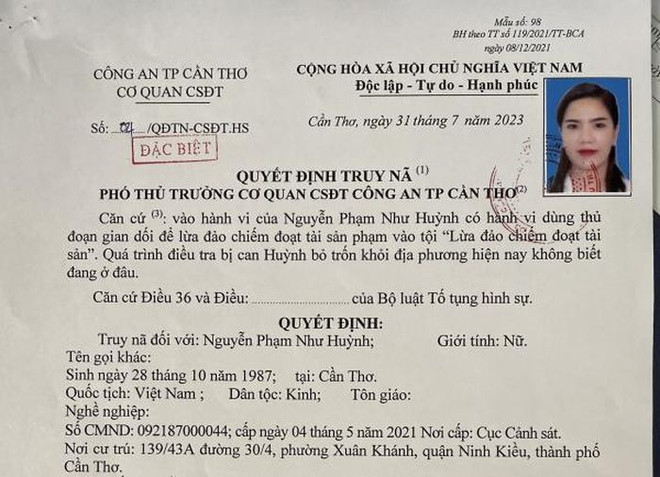 Mẫu số: 98
BH theo TT số 119/2021/TT-BCA
ngày 08/12/2021
CÔNG AN TP CẦN THƠ
CƠ QUAN CSĐT
CỘNG HÒA XÃ HỘI CHỦ NGHĨA VIỆT NAM
Độc lập - Tự do - Hạnh phúc
Số: /QĐTN-CSĐT.HS
Cần Thơ, ngày 31 tháng 7 năm 2023
ĐẶC BIỆT
QUYẾT ĐỊNH TRUY NÃ (1)
PHÓ THỦ TRƯỞNG CƠ QUAN CSĐT CÔNG AN TP CẦN THƠ(2)
Căn cứ (3): vào hành vi của Nguyễn Phạm Như Huỳnh có hành vi dùng thủ
đoạn gian dối để lừa đảo chiếm đoạt tài sản phạm vào tội “Lừa đảo chiếm đoạt tài
sản”. Quá trình điều tra bị can Huỳnh bỏ trốn khỏi địa phương hiện nay không biết
đang ở đâu.
Căn cứ Điều 36 và Điều: ........................ của Bộ luật Tố tụng hình sự.
QUYẾT ĐỊNH:
Truy nã đối với: Nguyễn Phạm Như Huỳnh; Giới tính: Nữ.
Tên gọi khác:
Sinh ngày 28 tháng 10 năm 1987; tại: Cần Thơ.
Quốc tịch: Việt Nam ; Dân tộc: Kinh; Tôn giáo:
Nghề nghiệp:
Số CMND: 092187000044; cấp ngày 04 tháng 5 năm 2021 Nơi cấp: Cục Cảnh sát.
Nơi cư trú: 139/43A đường 30/4, phường Xuân Khánh, quận Ninh Kiều, thành phố
Cần Thơ.